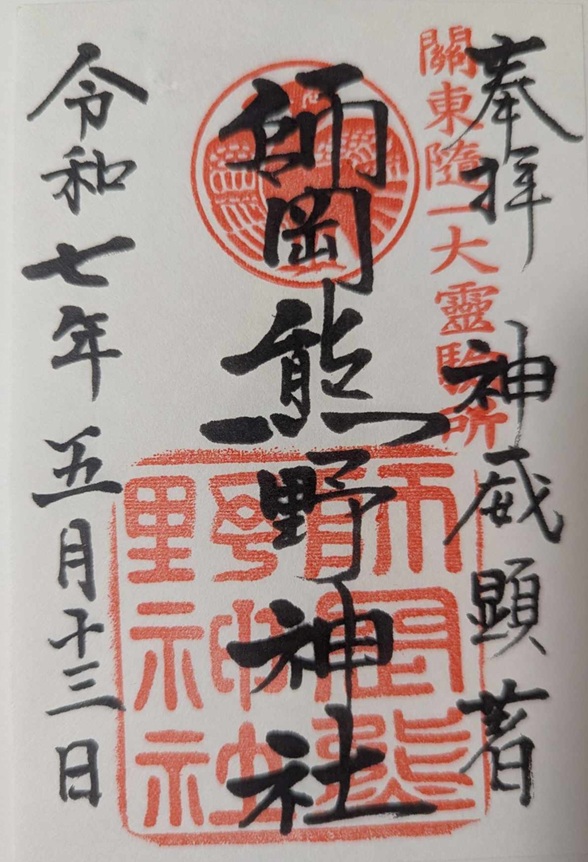 奉拝　神威顕著
關東隨一大靈驗所
師岡熊野神社
師岡熊
野神社
令和七年五月十三日